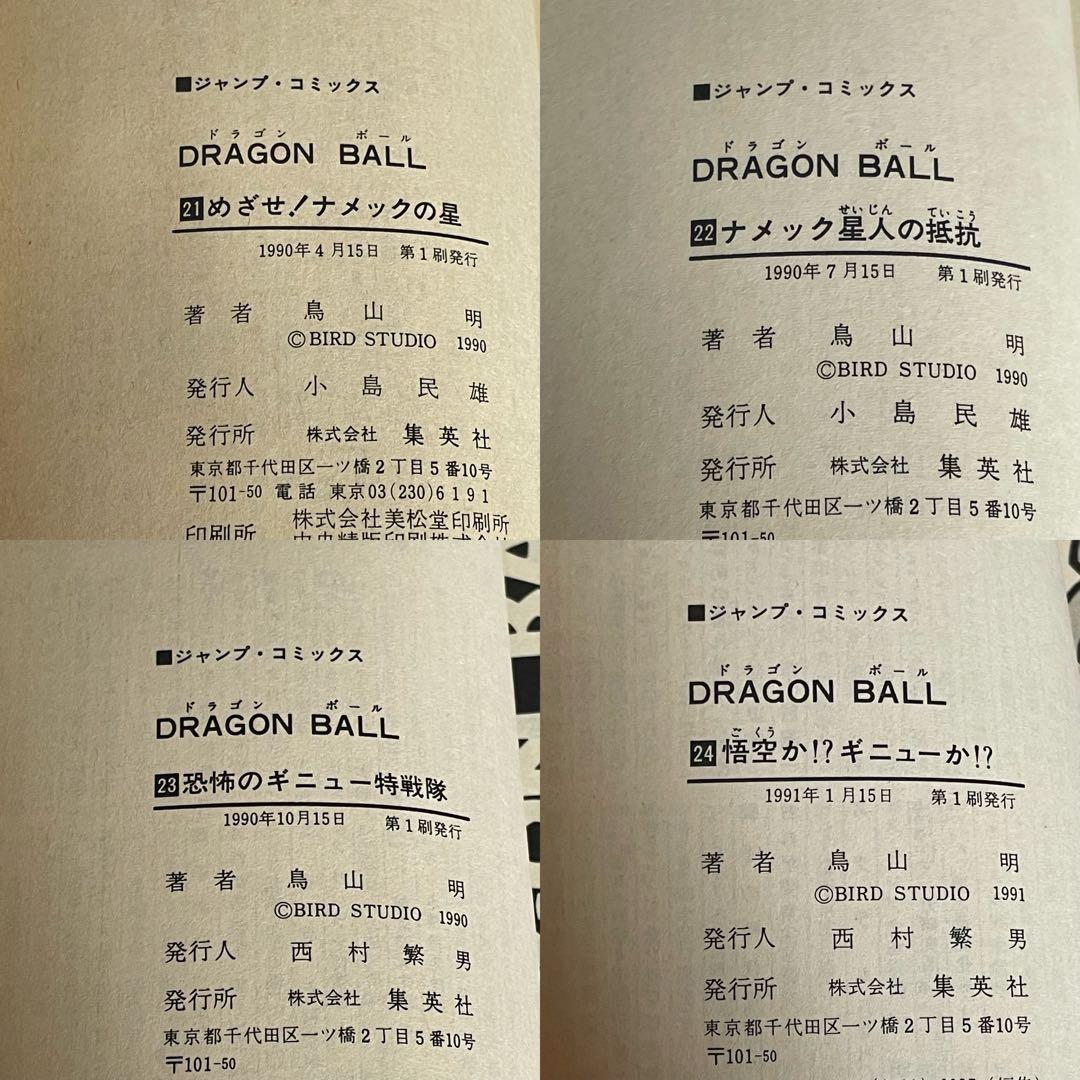 ■ジャンプ・コミックス
ドラゴン ボール
DRAGON BALL
21めざせ!ナメックの星
1990年4月15日 第1刷発行
著者 鳥山 明
©BIRD STUDIO 1990
発行人 小島民雄
発行所 株式会社 集英社
東京都千代田区一ツ橋2丁目5番10号
〒101-50 電話 東京03(230)6191
印刷所 株式会社美松堂印刷所
中央精版印刷株式会社
■ジャンプ・コミックス
ドラゴン ボール
DRAGON BALL
せいじん ていこう
22ナメック星人の抵抗
1990年7月15日 第1刷発行
著者 鳥山 明
©BIRD STUDIO 1990
発行人 小島民雄
発行所 株式会社 集英社
東京都千代田区一ツ橋2丁目5番10号
〒101-50
■ジャンプ・コミックス
ドラゴン ボール
DRAGON BALL
23恐怖のギニュー特戦隊
1990年10月15日 第1刷発行
著者 鳥山 明
©BIRD STUDIO 1990
発行人 西村繁男
発行所 株式会社 集英社
東京都千代田区一ツ橋2丁目5番10号
〒101-50
■ジャンプ・コミックス
ドラゴン ボール
DRAGON BALL
ごくう
24悟空か!?ギニューか!?
1991年1月15日 第1刷発行
著者 鳥山 明
©BIRD STUDIO 1991
発行人 西村繁男
発行所 株式会社 集英社
東京都千代田区一ツ橋2丁目5番10号
〒101-50